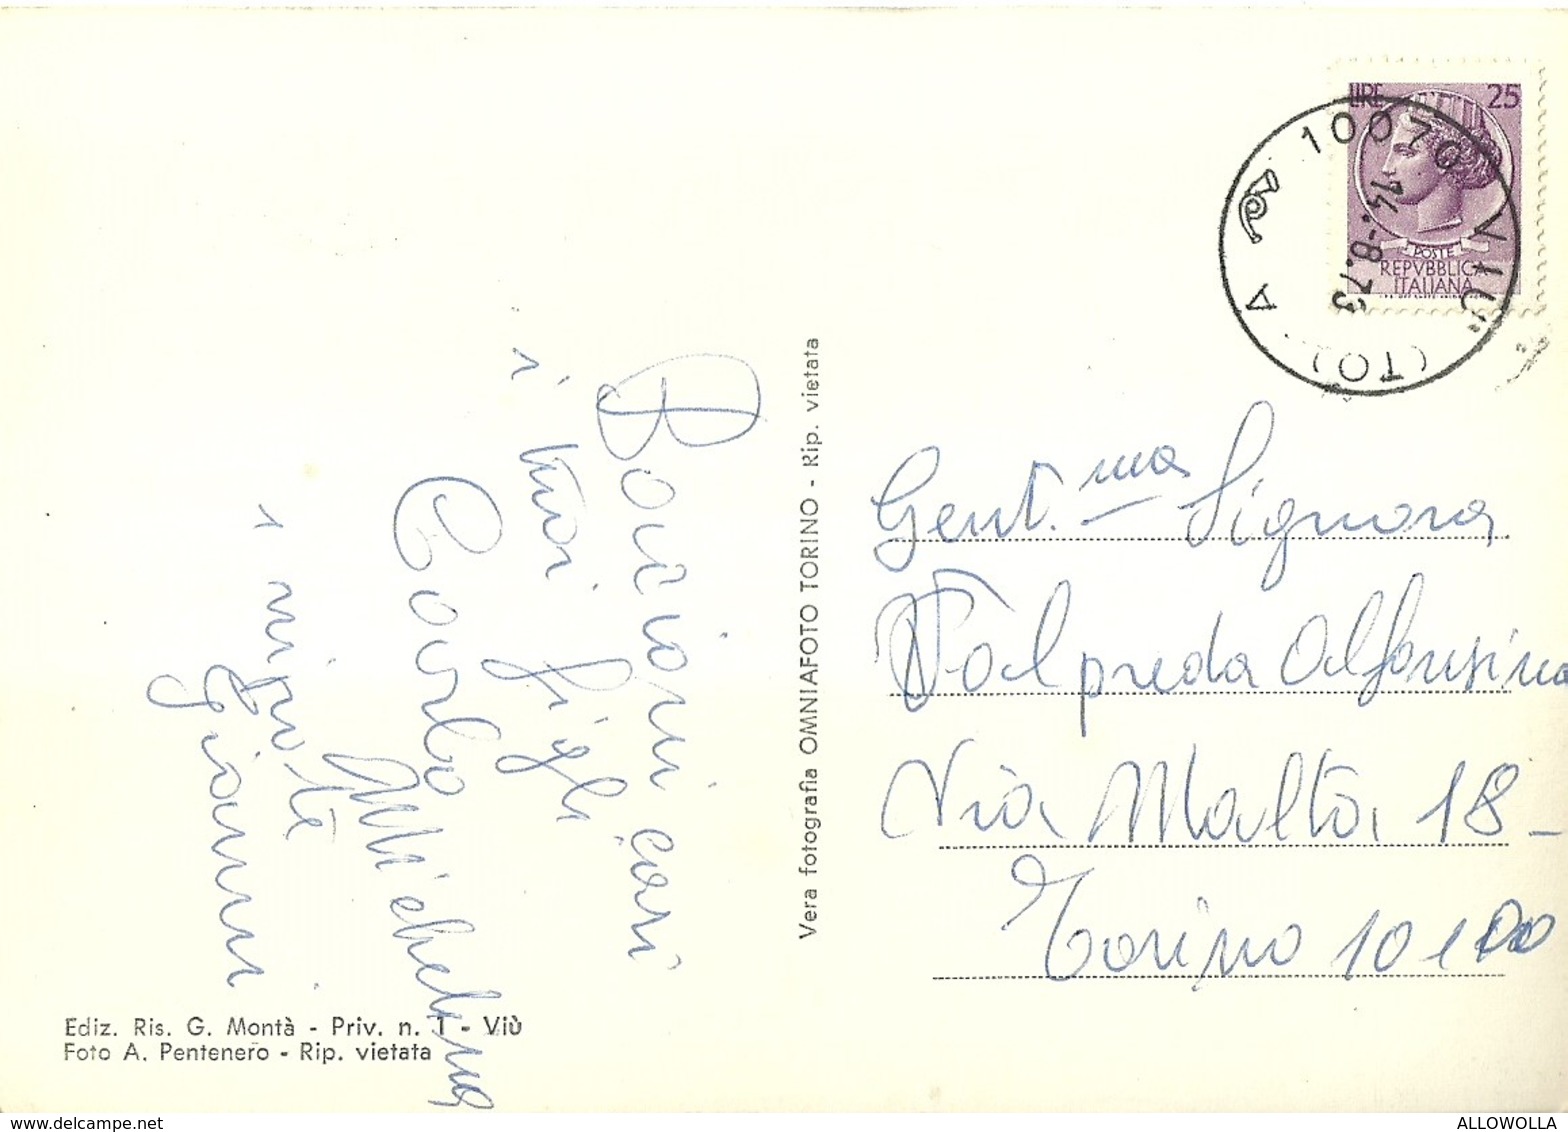 LIRE 25
POSTE
REPVBBLICA
ITALIANA
10070 VIU' (TO) A
14.-8.73
Bacioni cari
i tuoi figli
Carlo Michelina
i nipote
Gianni
Vera fotografia OMNIAFOTO TORINO - Rip. vietata
Gent.ma Signora
Valpreda Alfonsina
Via Malta 18-
Torino 10100
Ediz. Ris. G. Montà - Priv. n. 1 - Viù
Foto A. Pentenero - Rip. vietata
ALLOWOLLA